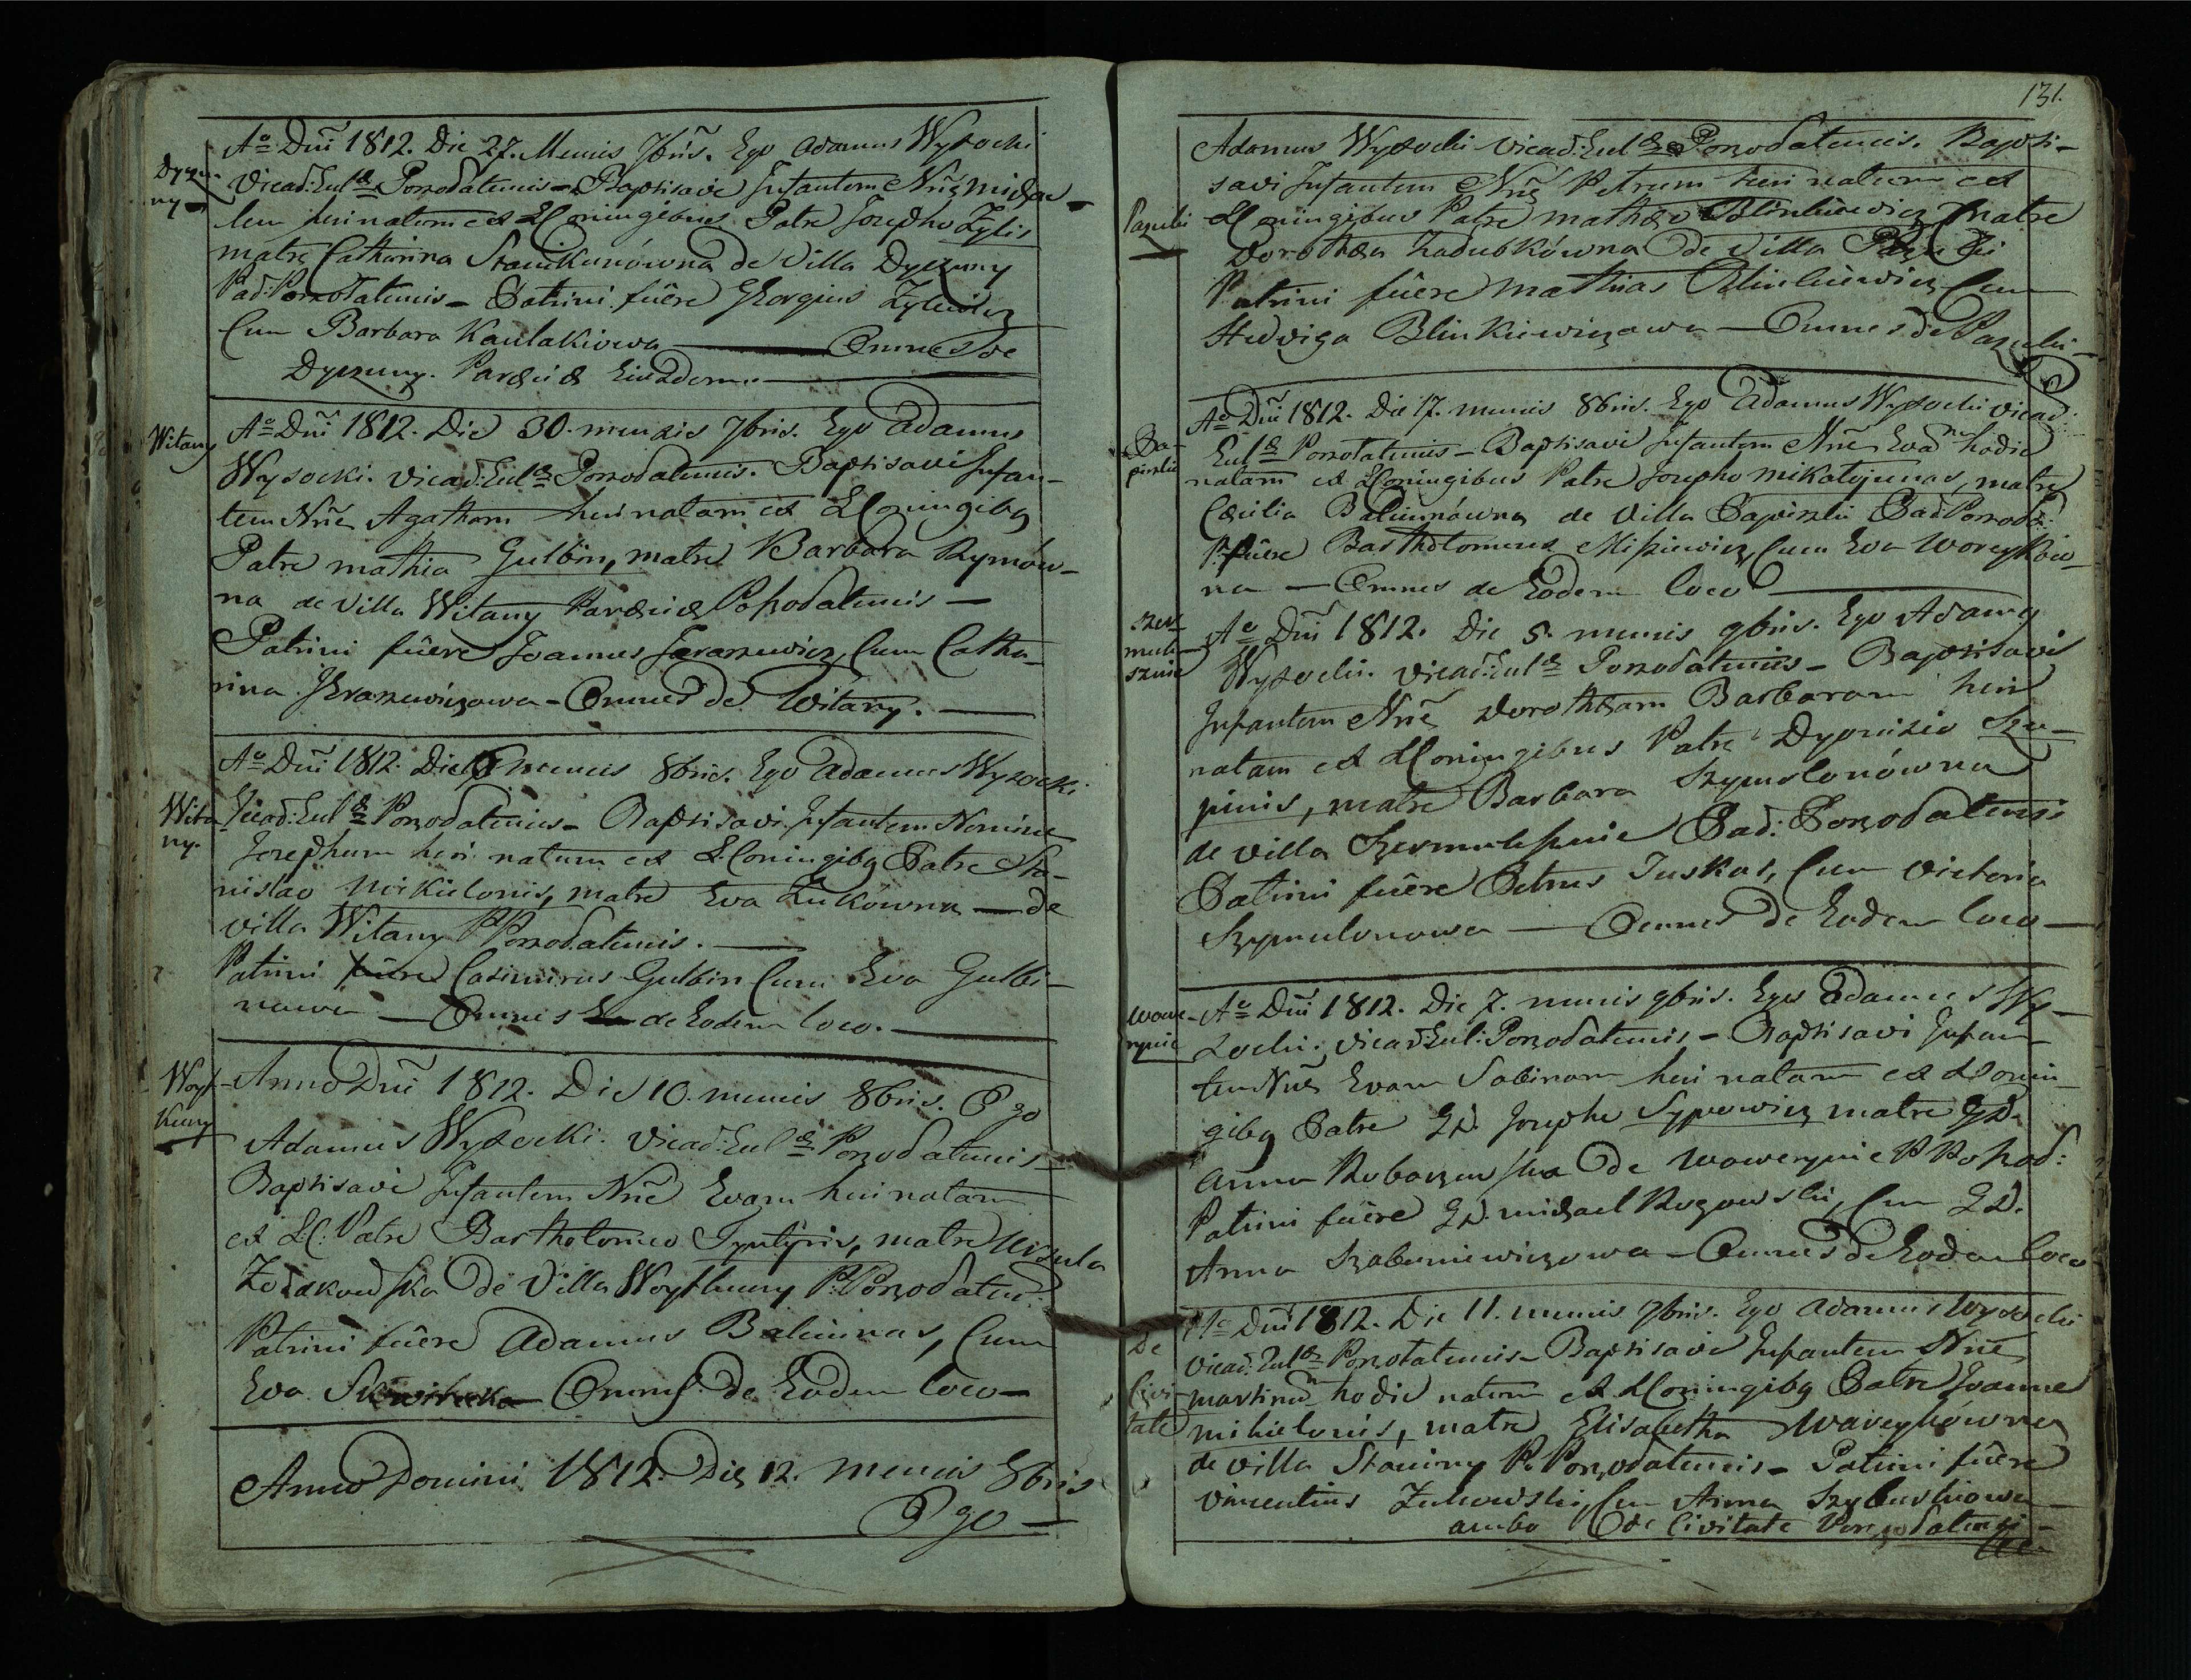 Dyrzu-
ny
Ao Dni 1812. Die 27. Mensis 7bris. Ego Adamus Wysocki
Vicad: Eulæ Poszodatensis - Baptisavi Infantem Nne Michae-
lem heri natum ex LConiugibus Patre Josepho Zylis
matre Catharina Stanikunówna de Villa Dyrzuny
Pad: Poszodatensis - Patrini fuêre Georgius Zylewicz
Cum Barbara Kaulakiowa — Omnes de
Dyrzuny. Paræciæ Eiusdem.
Witany
Ao Dni 1812. Die 30. mensis 7bris. Ego Adamus
Wysocki. Vicad: Eulæ Poszodatensis. Baptisavi Infan-
tem Nne Agatham heri natam ex LConiugibq
Patre mathia Gulbin, matre Barbara Rymów-
na de Villa Witany Paræciæ Poszodatensis —
Patrini fuêre Joannes Jaraszewicz, Cum Catha-
rina Jaraszewiczowa - Omnes de Witany. —
Wita
ny.
Ao Dni 1812. Die mensis 8bris. Ego Adamus Wysocki
Vicad: Eulæ Poszodatensis - Baptisavi Infantem Nomine
Josephum heri natum ex L.Coniugibq Patre Sta-
nislao Mikielonis, matre Eva Zukowna — de
villa Witany P Poszodatensis. —
Patrini fuêre Casimirus Gulbin Cum Eva Gulbi-
nowa — Omnes de Eodem loco. —
Woyt-
kuny
Anno Dni 1812. Die 10. mensis 8bris. Ego
Adamus Wysocki. Vicad: Eulæ Poszodatensis
Baptisavi Infantem Nne Evam heri natam
ex L.C: Patre Bartholomeo matre Urzula
de Villa Woytkuny P: Poszodaten:
Patrini fuêre Adamus Baliunas, Cum
Eva Omnes de Eodem loco —
Anno Domini 1812. Die 12. mensis 8bris
Ego —
131.
Pazulki
Adamus Wysocki Vicad: Eulæ Poszodatensis. Bapti-
savi Infantem Nne Petrum heri natum ex
LConiugibus Patre mathæo Blinkiewicz matre
Dorothea Zadubkówna de Villa
Patrini fuêre mathias Blinkiewicz Cum
Hedviga Blinkiewiczowa — Omnes de Pazulki —
Pa-
piszki
Ao Dni 1812. Die 17. mensis 8bris. Ego Adamus Wysocki Vicad:
Eulæ Poszodatensis - Baptisavi Infantem Nne Evam hodie
natam ex LConiugibus Patre Josepho mikołojunas, matre
Cæcilia Baliunówna de Villa Papiszki Pad Poszod:
P: fuêre Bartholomeus Cum Eva
na — Omnes de Eodem loco —
Szer-
muk-
sznie
Ao Dni 1812. Die 5. mensis 9bris. Ego Adamq
Wysocki. Vicad: Eulæ Poszodatensis - Baptisavi
Infantem Nne Dorotheam Barbaram heri
natam ex LConiugibus Patre Dyonizio Szu-
pinis, matre Barbara Szymelonówna
de villa Szermuksznie Pad: Poszodatensi
Patrini fuêre Petrus Juskas, Cum Victoria
Szymulonowa — Omnes de Eodem loco —
Wawe-
rynie
Ao Dni 1812. Die 7. mensis 9bris. Ego Adamus Wy-
socki. Vicad: Eul: Poszodatensis - Baptisavi Infan-
tem Nne Evam Sabinam heri natam ex LConiu-
gibq Patre GD. Josepho Sypowicz matre GD.
Anna de Wawerynie P Poszod:
Patrini fuêre GD. michael Rozowski, Cum GD.
Anna Szabuniewiczowa - Omnes de Eodem loco
De
Civi-
tate
Ao Dni 1812. Die 11. mensis 9bris. Ego Adamus Wysocki
Vicad: Eulæ Poszodatensis - Baptisavi Infantem Nne
martinum hodie natum ex LConiugibq Patre Joanne
mikielonis, matre Elisabetha
de villa P. Poszodatensis - Patrini fuêre
Vincentius Zukowski, Cum Anna
ambo de Civitate Poszodatensi —